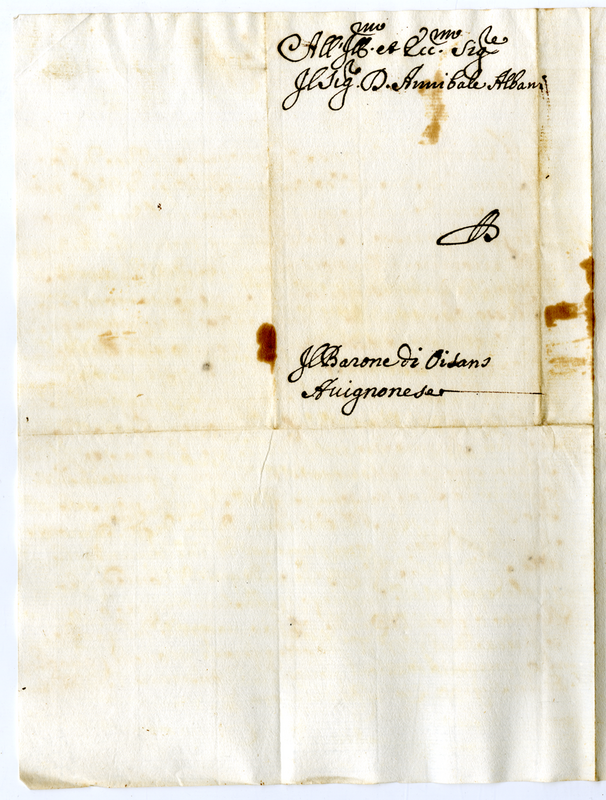 All'Ill.mo et Ecc.mo Sig.re
Il Sig.re D. Annibale Albani
Il Barone di Oisans
Avignonese